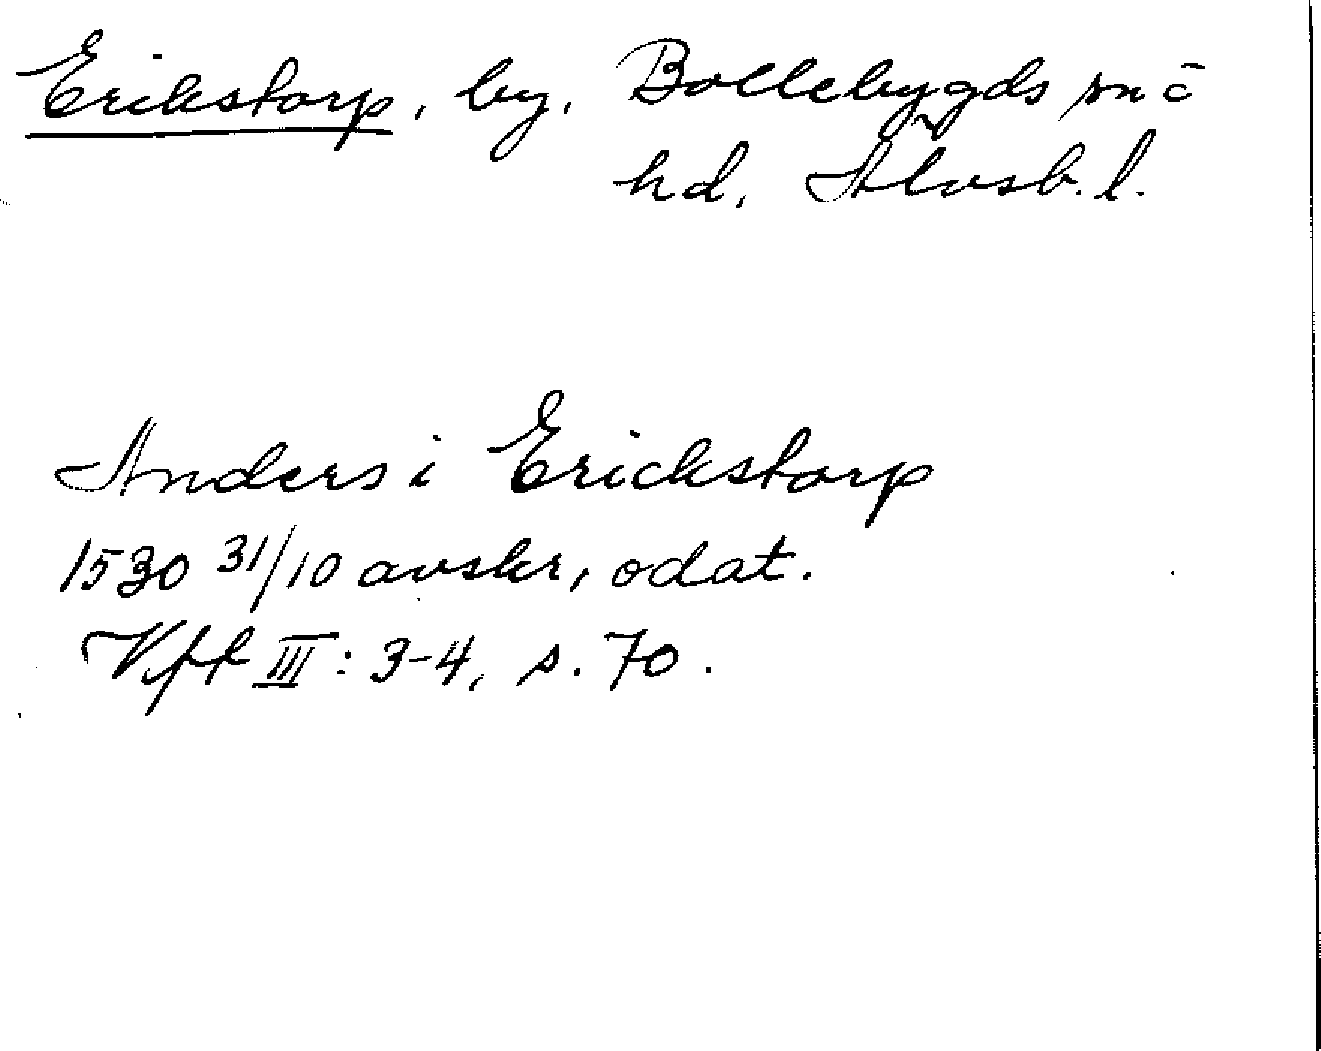 Erikstorp, by, Bollebygds sn o
hd, Älvsb. l.
Anders i Erickstorp
1530 31/10 avskr, odat.
Vff III: 3-4, s. 70.